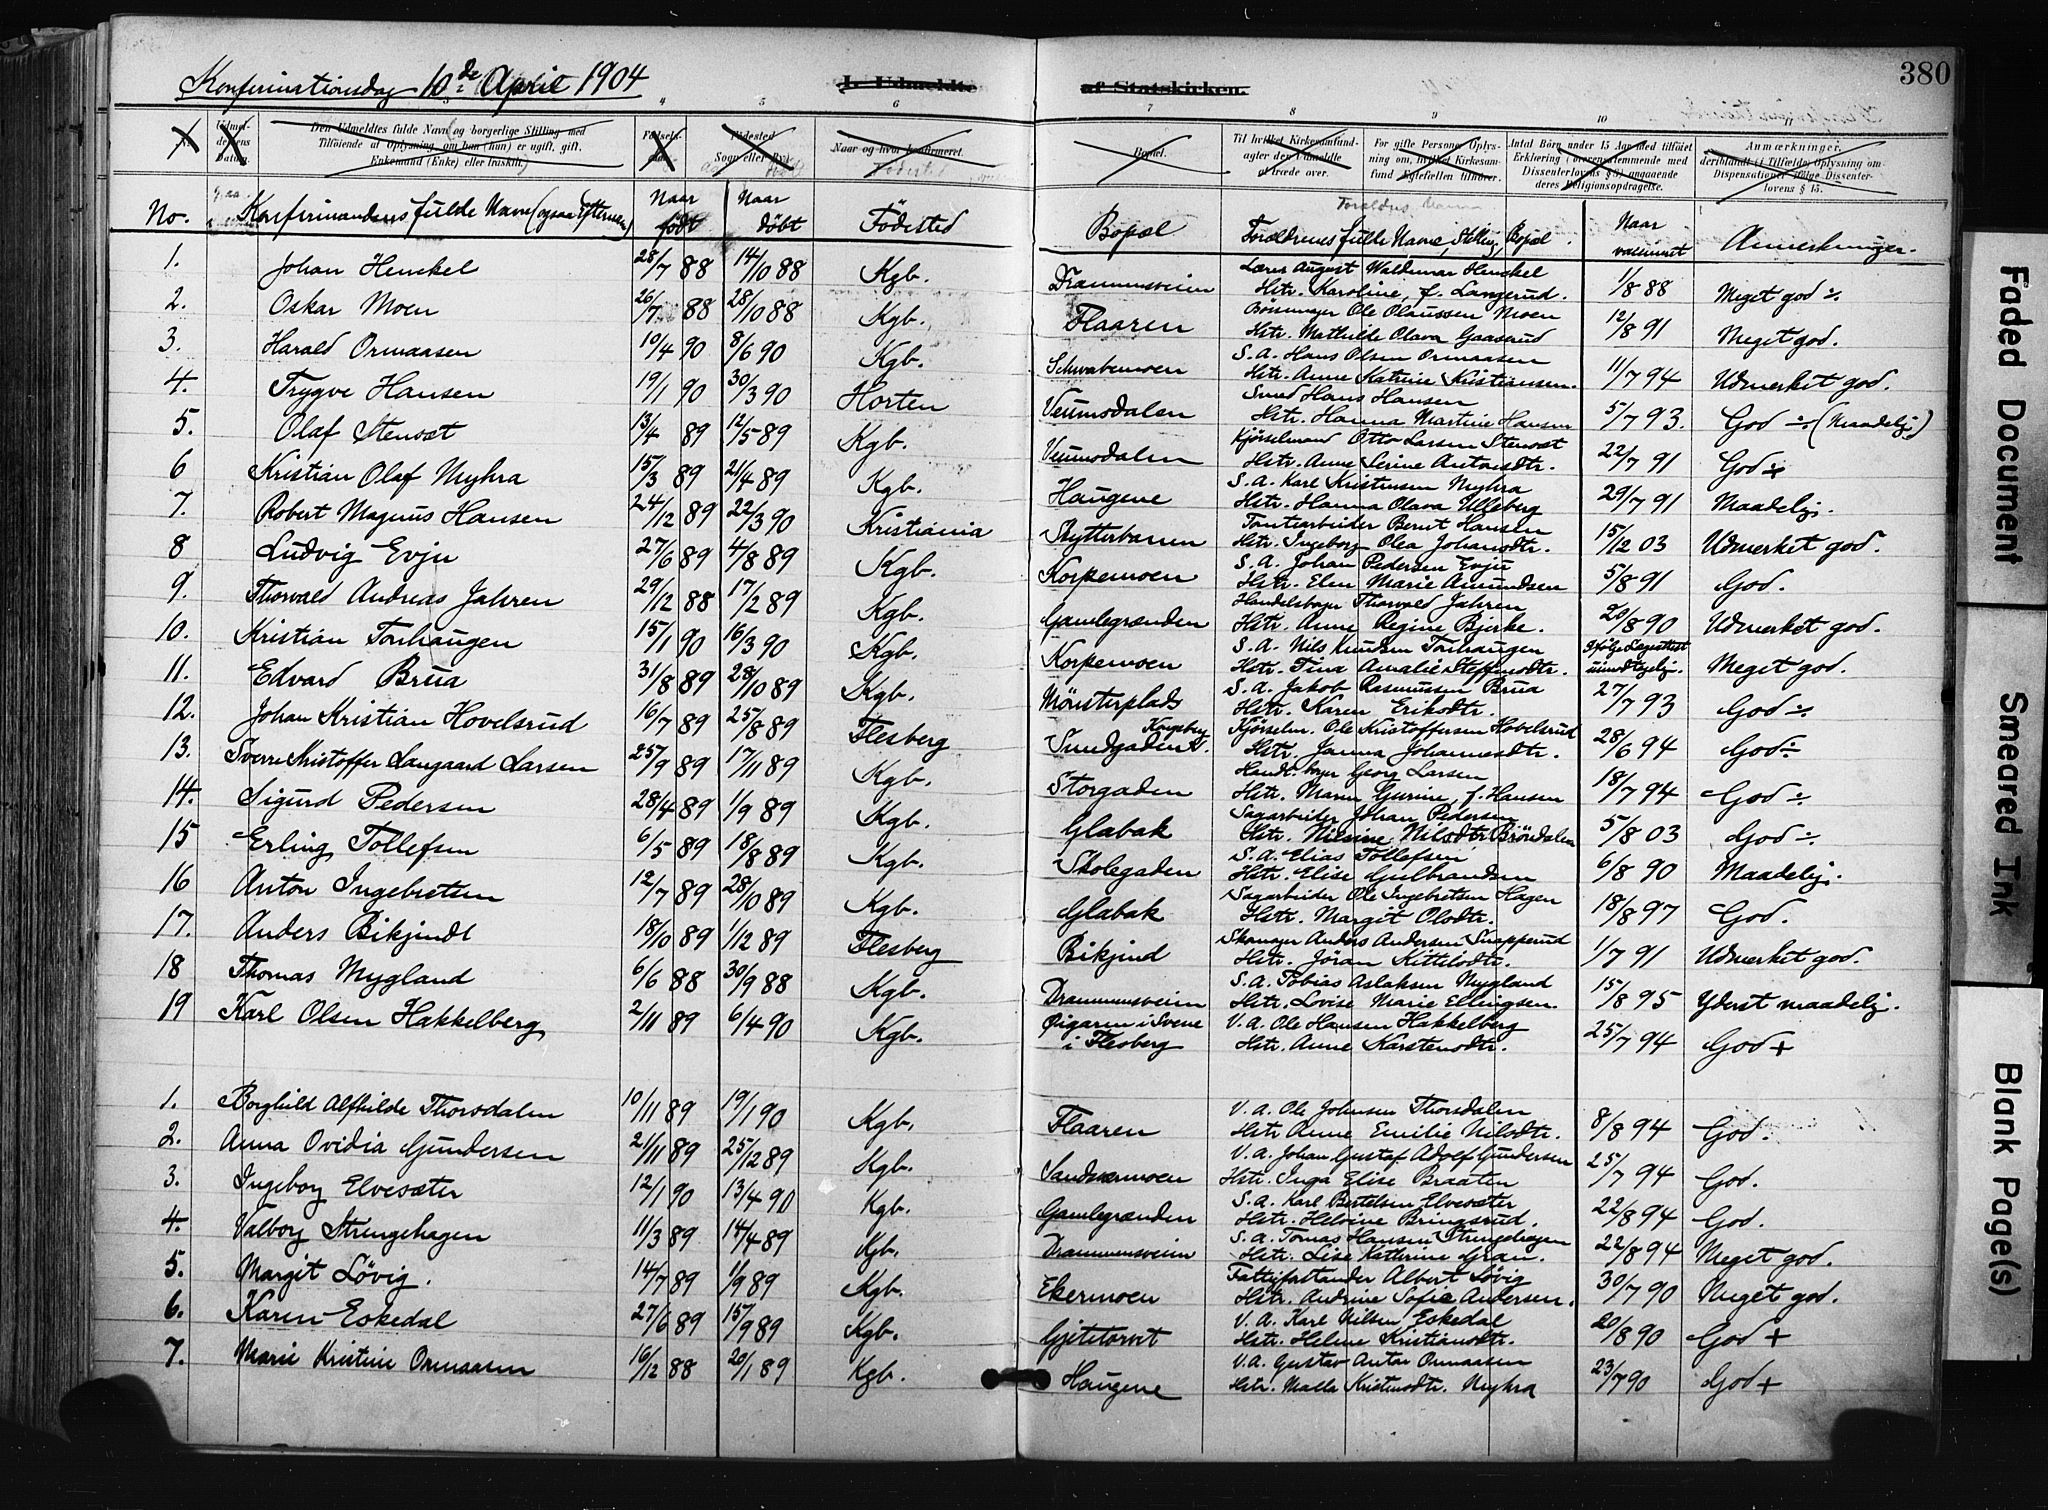 Konfirmationsdag 10de April 1904
I. Udmeldte
af Statskirken.
380
3 4 5 6 7 8 9 10 11
Udmel-
delsens
Datum.
Den Udmeldtes fulde Navn (og borgerlige Stilling med
Tilføiende af Oplysning om han (hun) er ugift, gift,
Enkemand (Enke) eller fraskilt.)
Fødsels-
Fødested
Sogn eller By.
Naar og hvor konfirmeret.
Bopæl.
Til hvilket Kirkesamfund
agter den Udmeldte
at træde over.
For gifte Personer Oplys-
ning om, hvilket Kirkesam-
fund Ægtefællen tilhører.
Antal Børn under 15 Aar med tilføiet
Erklæring (overensstemmende med
Dissenterlovens § 3) angaaende
deres Religionsopdragelse.
Anmærkninger,
deriblandt (i Tilfælde) Oplysning om
Dispensationer ifølge Dissenter-
lovens § 15.
No. Konfirmandens fulde Navn (ogsaa Efternavn) Naar født Naar døbt Fødested Bopæl Forældrenes fulde Navne, Stilling, Bopæl. Naar vaccineret Anmerkninger.
1. Johan Henckel 28/7 88 14/10 88 Kgb. Drammensveien Lærer August Waldemar Henckel
Hstr. Karoline, f. Langerud. 1/8 88 Meget god ÷
2. Oskar Moen 26/7 88 28/10 88 Kgb. Flaaren Børsemager Ole Olaussen Moen
Hstr. Mathilde Olava Gaaserud 12/8 91 Meget god.
3. Harald Ormaasen 10/4 90 8/6 90 Kgb. Schwabemoen S. A. Hans Olsen Ormaasen
Hstr. Anne Katrine Kristiansen. 11/7 94 Udmerket god.
4. Trygve Hansen 19/1 90 30/3 90 Horten Veumsdalen Smed Hans Hansen
Hstr. Hanna Martine Hansen 5/7 93. God ÷ (Maadelig)
5. Olaf Stensæt 13/4 89 12/5 89 Kgb. Veumsdalen Kjørselmand Otto Larsen Stensæt
Hstr. Anne Serine Antonsdtr. 22/7 91 God ÷
6 Kristian Olaf Myhra 15/3 89 21/4 89 Kgb. Haugene S. A. Karl Kristensen Myhra
Hstr. Hanna Olava Ulleberg 29/7 91 Maadelig.
7. Robert Magnus Hansen 24/12 89 22/3 90 Kristiania Skytterbanen Tomtearbeider Bernt Hansen
Hstr. Ingeborg Olea Johansdtr. 15/12 03 Udmerket god.
8 Ludvig Evju 27/6 89 4/8 89 Kgb. Korpemoen S. A. Johan Pedersen Evju
Hstr. Elen Marie Amundsen 5/8 91 God.
9. Thorvald Andreas Jahren 29/12 88 17/2 89 Kgb. Gamlegrænden Handelsborger Thorvald Jahren
Hstr. Anne Regine Bjerke. 26/8 90 Udmerket god.
10. Kristian Tonhaugen 15/1 90 16/3 90 Kgb. Korpemoen S. A. Nils Knudsen Tonhaugen
Hstr. Tina Amalie Steffensdtr. Ifølge Lægeattest uimodtagelig. Meget god.
11. Edvard Brua 31/8 89 28/10 89 Kgb. Mønsterplads S. A. Jakob Rasmussen Brua
Hstr. Karen Eriksdtr. 27/7 93 God ÷
12. Johan Kristian Hovelsrud 16/7 89 25/8 89 Flesberg Sundgaden Kongsberg. Kjørselm. Ole Kristoffersen Hobelsrud
Hstr. Janna Johannesdtr. 28/6 94 God ÷
13. Sverre Kristoffer Langaard Larsen 25/9 89 17/11 89 Kgb. Storgaden Handelsborger Georg Larsen
Hstr. Maren Gurine, f. Hansen 18/7 94 God ÷
14. Sigurd Pedersen 28/4 89 1/9 89 Kgb. Glabak Sagarbeider Johan Pedersen
Hstr. Nilsine Nilsdtr. Brøndalen 5/8 03 God ÷
15 Erling Tollefsen 6/5 89 18/8 89 Kgb. Skolegaden S. A. Elias Tollefsen
Hstr. Elise Gulbrandsen 6/8 90 Maadelig.
16 Anton Ingebretsen 12/7 89 28/10 89 Kgb. Glabak Sagarbeider Ole Ingebretsen Hagen
Hstr. Margit Olsdtr. 18/8 97 God.
17. Anders Bikjindt 18/10 89 1/12 89 Flesberg Bikjind Skomager Anders Andersen Snapperud
Hstr. Jøran Kittilsdtr. 1/7 91 Udmerket god.
18 Thomas Mygland 6/6 88 30/9 88 Kgb. Drammensveien S. A. Tobias Aslaksen Mygland
Hstr. Lovise Marie Ellingsen. 15/8 95 Yderst maadelig.
19 Karl Olsen Hakkelberg 2/11 89 6/4 90 Kgb. Øigarn i Svene
i Flesberg V. A. Ole Hansen Hakkelberg
Hstr. Anne Karstensdtr. 25/7 94 God +
1. Borghild Alfhilde Thorsdalen 10/11 89 19/1 90 Kgb. Flaaren V. A. Ole Johnsen Thorsdalen
Hstr. Anne Emilie Nilsdtr. 8/8 94 God.
2. Anna Ovidia Gundersen 21/11 89 25/12 89 Kgb. Sandsværmoen V. A. Johan Gustaf Adolf Gundersen
Hstr. Inga Elise Braaten 25/7 94 God.
3. Ingeborg Elvesæter 12/1 90 13/4 90 Kgb. Gamlegrænden S. A. Karl Bertelsen Elvesæter
Hstr. Helvine Bringsrud. 22/8 94 God.
4. Valborg Strengehagen 11/3 89 14/4 89 Kgb. Drammensveien S. A. Tomas Hansen Strengehagen
Hstr. Lise Kathrine Gran. 22/8 94 Meget god.
5. Margit Løvig. 14/7 89 1/9 89 Kgb. Ekermoen Fattigforstander Albert Løvig
Hstr. Andrine Sofie Andersen. 30/7 90 Meget god.
6. Karen Eskedal 27/6 89 15/9 89 Kgb. Gjetetorvet V. A. Karl Nilsen Eskedal
Hstr. Helene Kristiansdtr. 20/8 90 God +
7. Marie Kristine Ormaasen 16/12 88 20/1 89 Kgb. Haugene V. A. Gustav Anton Ormaasen
Hstr. Malla Kristensdtr. Myhra 23/7 90 God +
Faded Document
Smeared Ink
Blank Page(s)